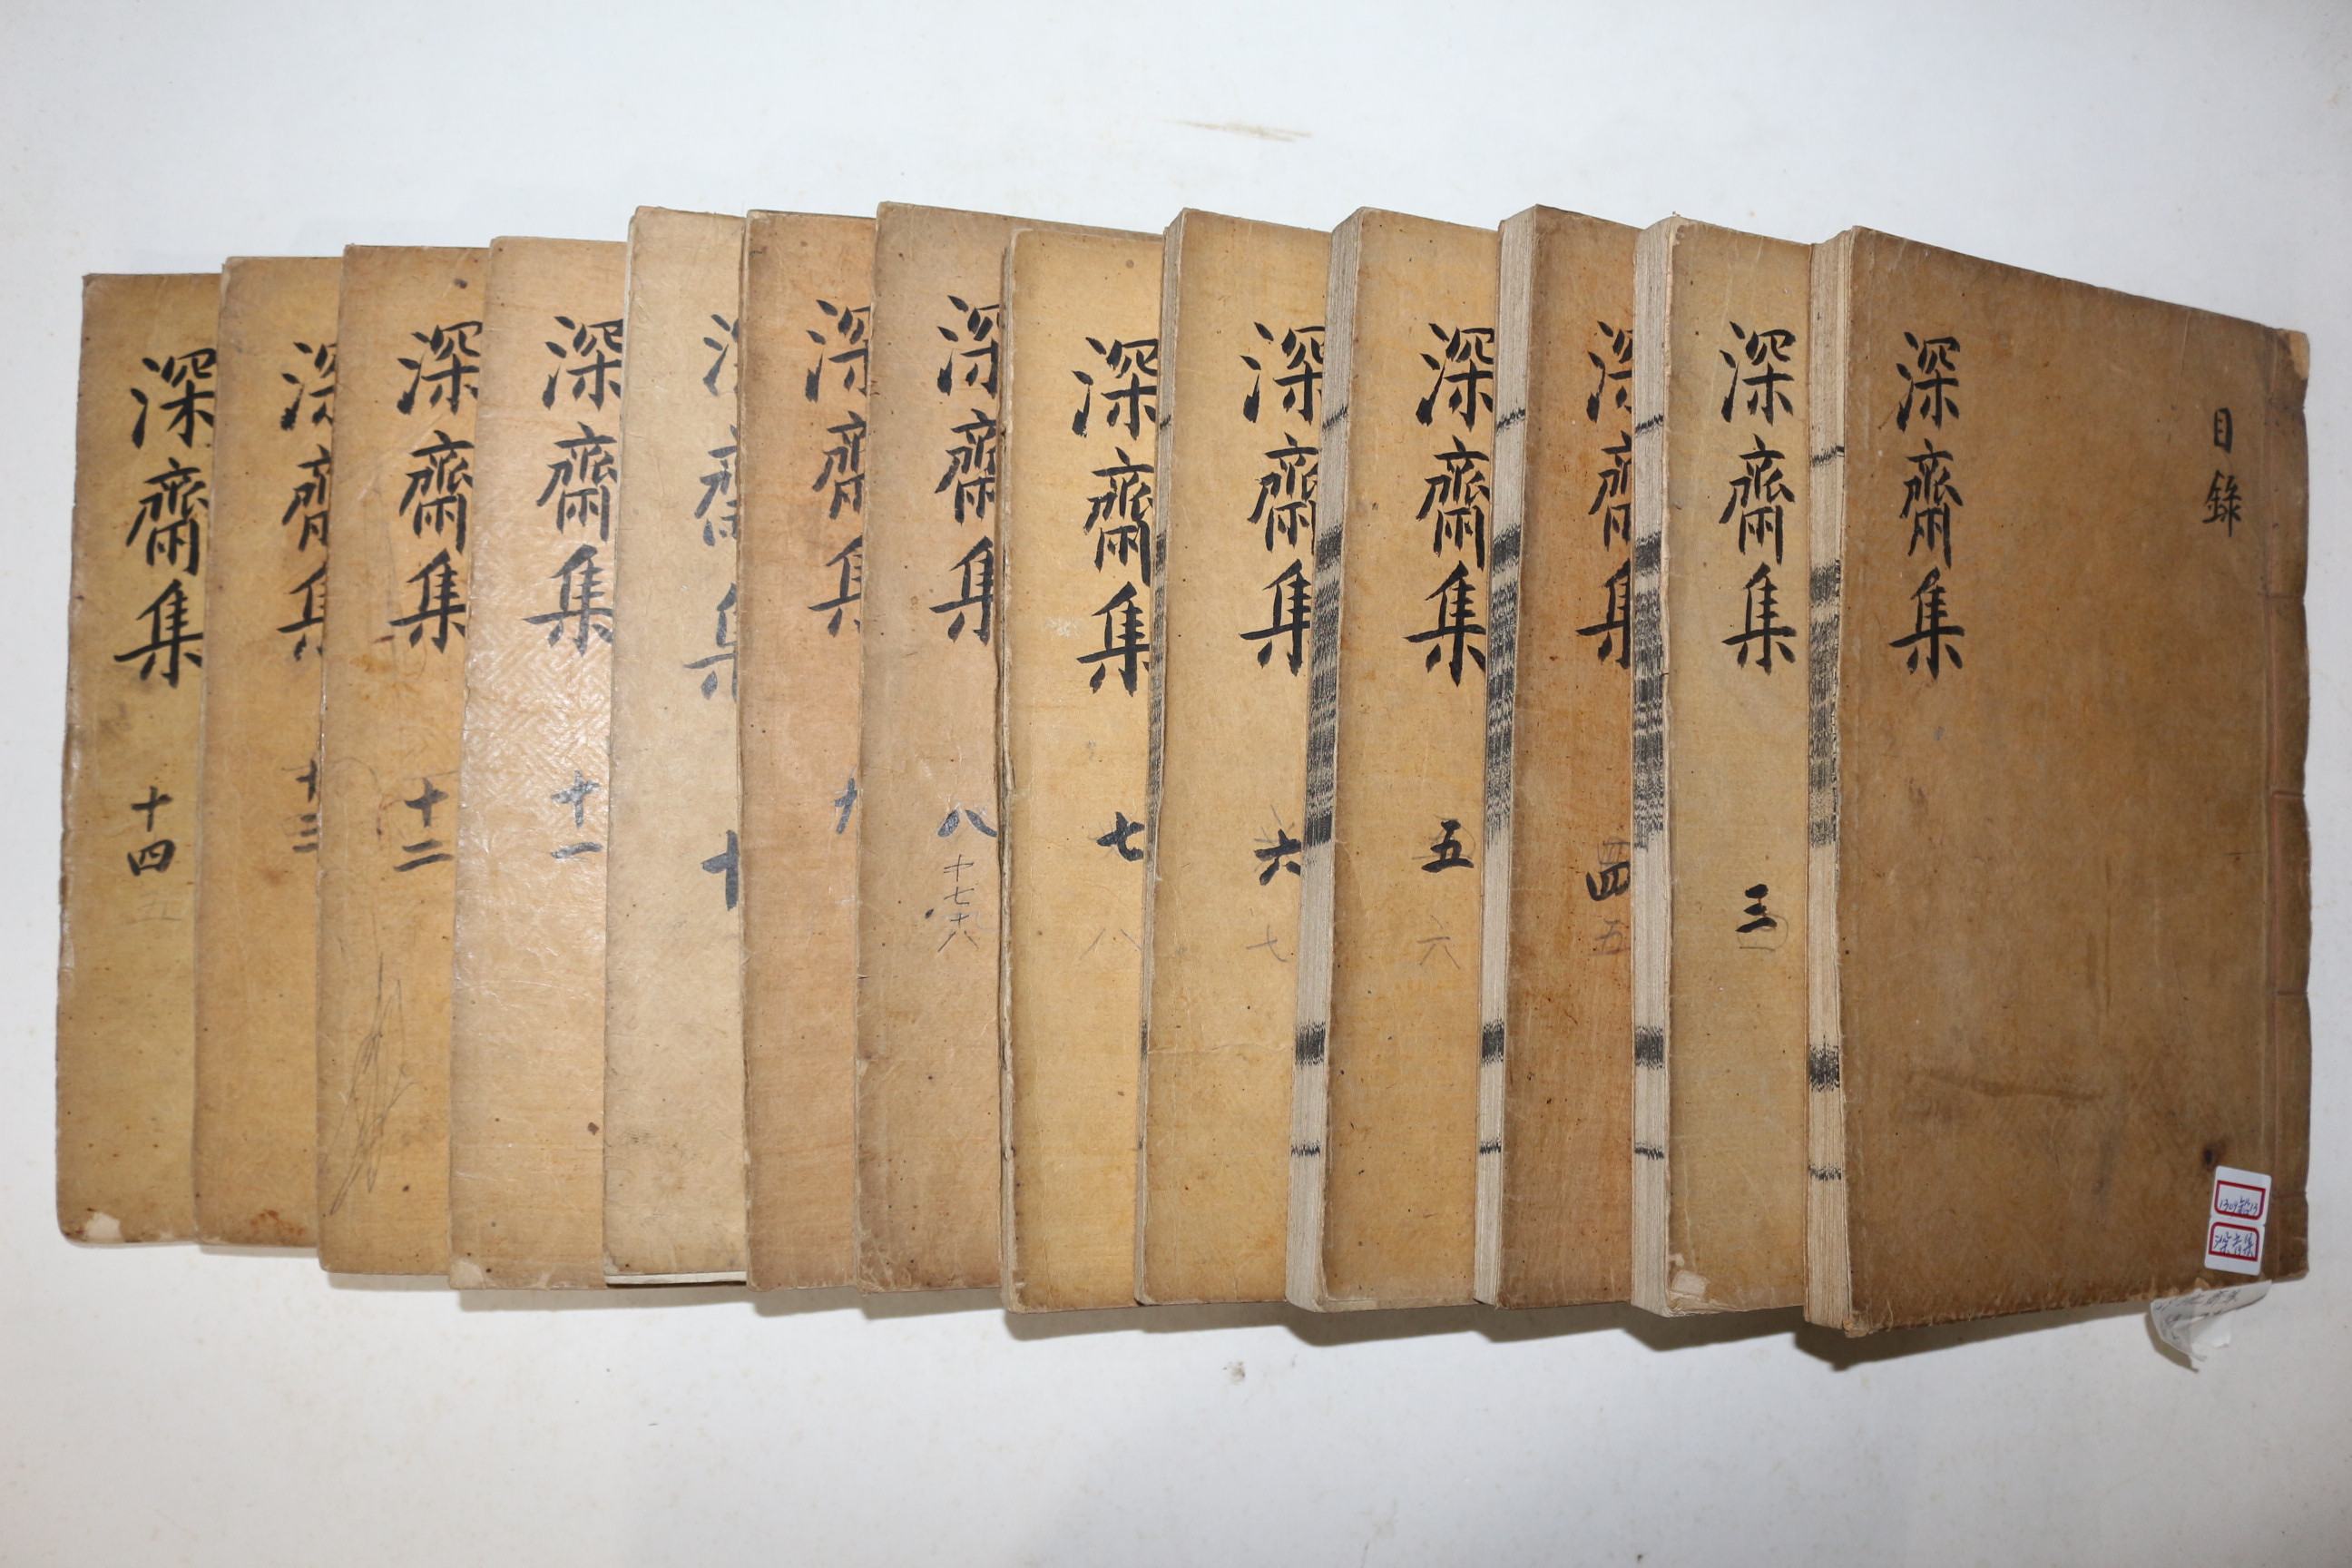 目錄
深齋集
深齋集
三
深齋集
四
五
深齋集
五
六
深齋集
六
七
深齋集
七
八
深齋集
八
十七
深齋集
九
深齋集
十
深齋集
十一
深齋集
十二
深齋集
十三
深齋集
十四
五
深齋集